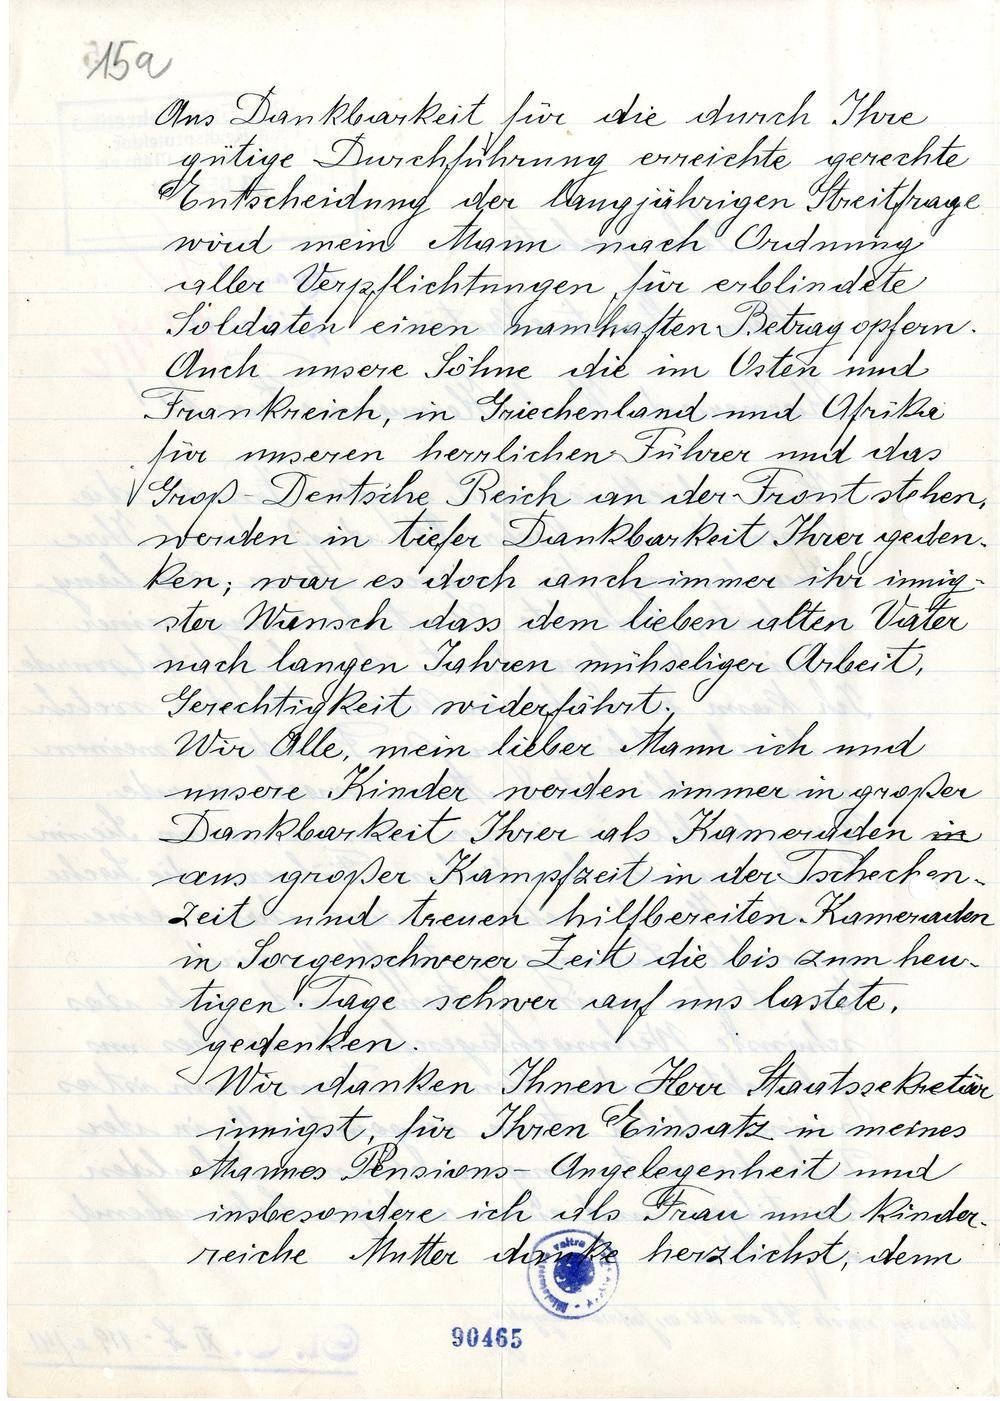 15a
Aus Dankbarkeit für die durch Ihre
gütige Durchführung erreichte gerechte
Entscheidung der langjährigen Streitfrage
wird mein Mann nach Ordnung
aller Verpflichtungen, für erblindete
Soldaten einen namhaften Betrag opfern.
Auch unsere Söhne die im Osten und
Frankreich, in Griechenland und Afrika
für unseren herrlichen Führer und das
Groß-Deutsche Reich an der Front stehen,
werden in tiefer Dankbarkeit Ihrer geden-
ken; war es doch auch immer ihr innig-
ster Wunsch dass dem lieben alten Vater
nach langen Jahren mühseliger Arbeit,
Gerechtigkeit widerfährt.
Wir Alle, mein lieber Mann ich und
unsere Kinder werden immer in großer
Dankbarkeit Ihrer als Kameraden in
aus großer Kampfzeit in der Tschechen-
zeit und treuen hilfbereiten Kameraden
in Sorgenschwerer Zeit die bis zum heu-
tigen Tage schwer auf uns lastete,
gedenken.
Wir danken Ihnen Herr Staatssekretär
innigst, für Ihren Einsatz in meines
Mannes Pensions-Angelegenheit und
insbesondere ich als Frau und kinder-
reiche Mutter danke herzlichst, denn
90465